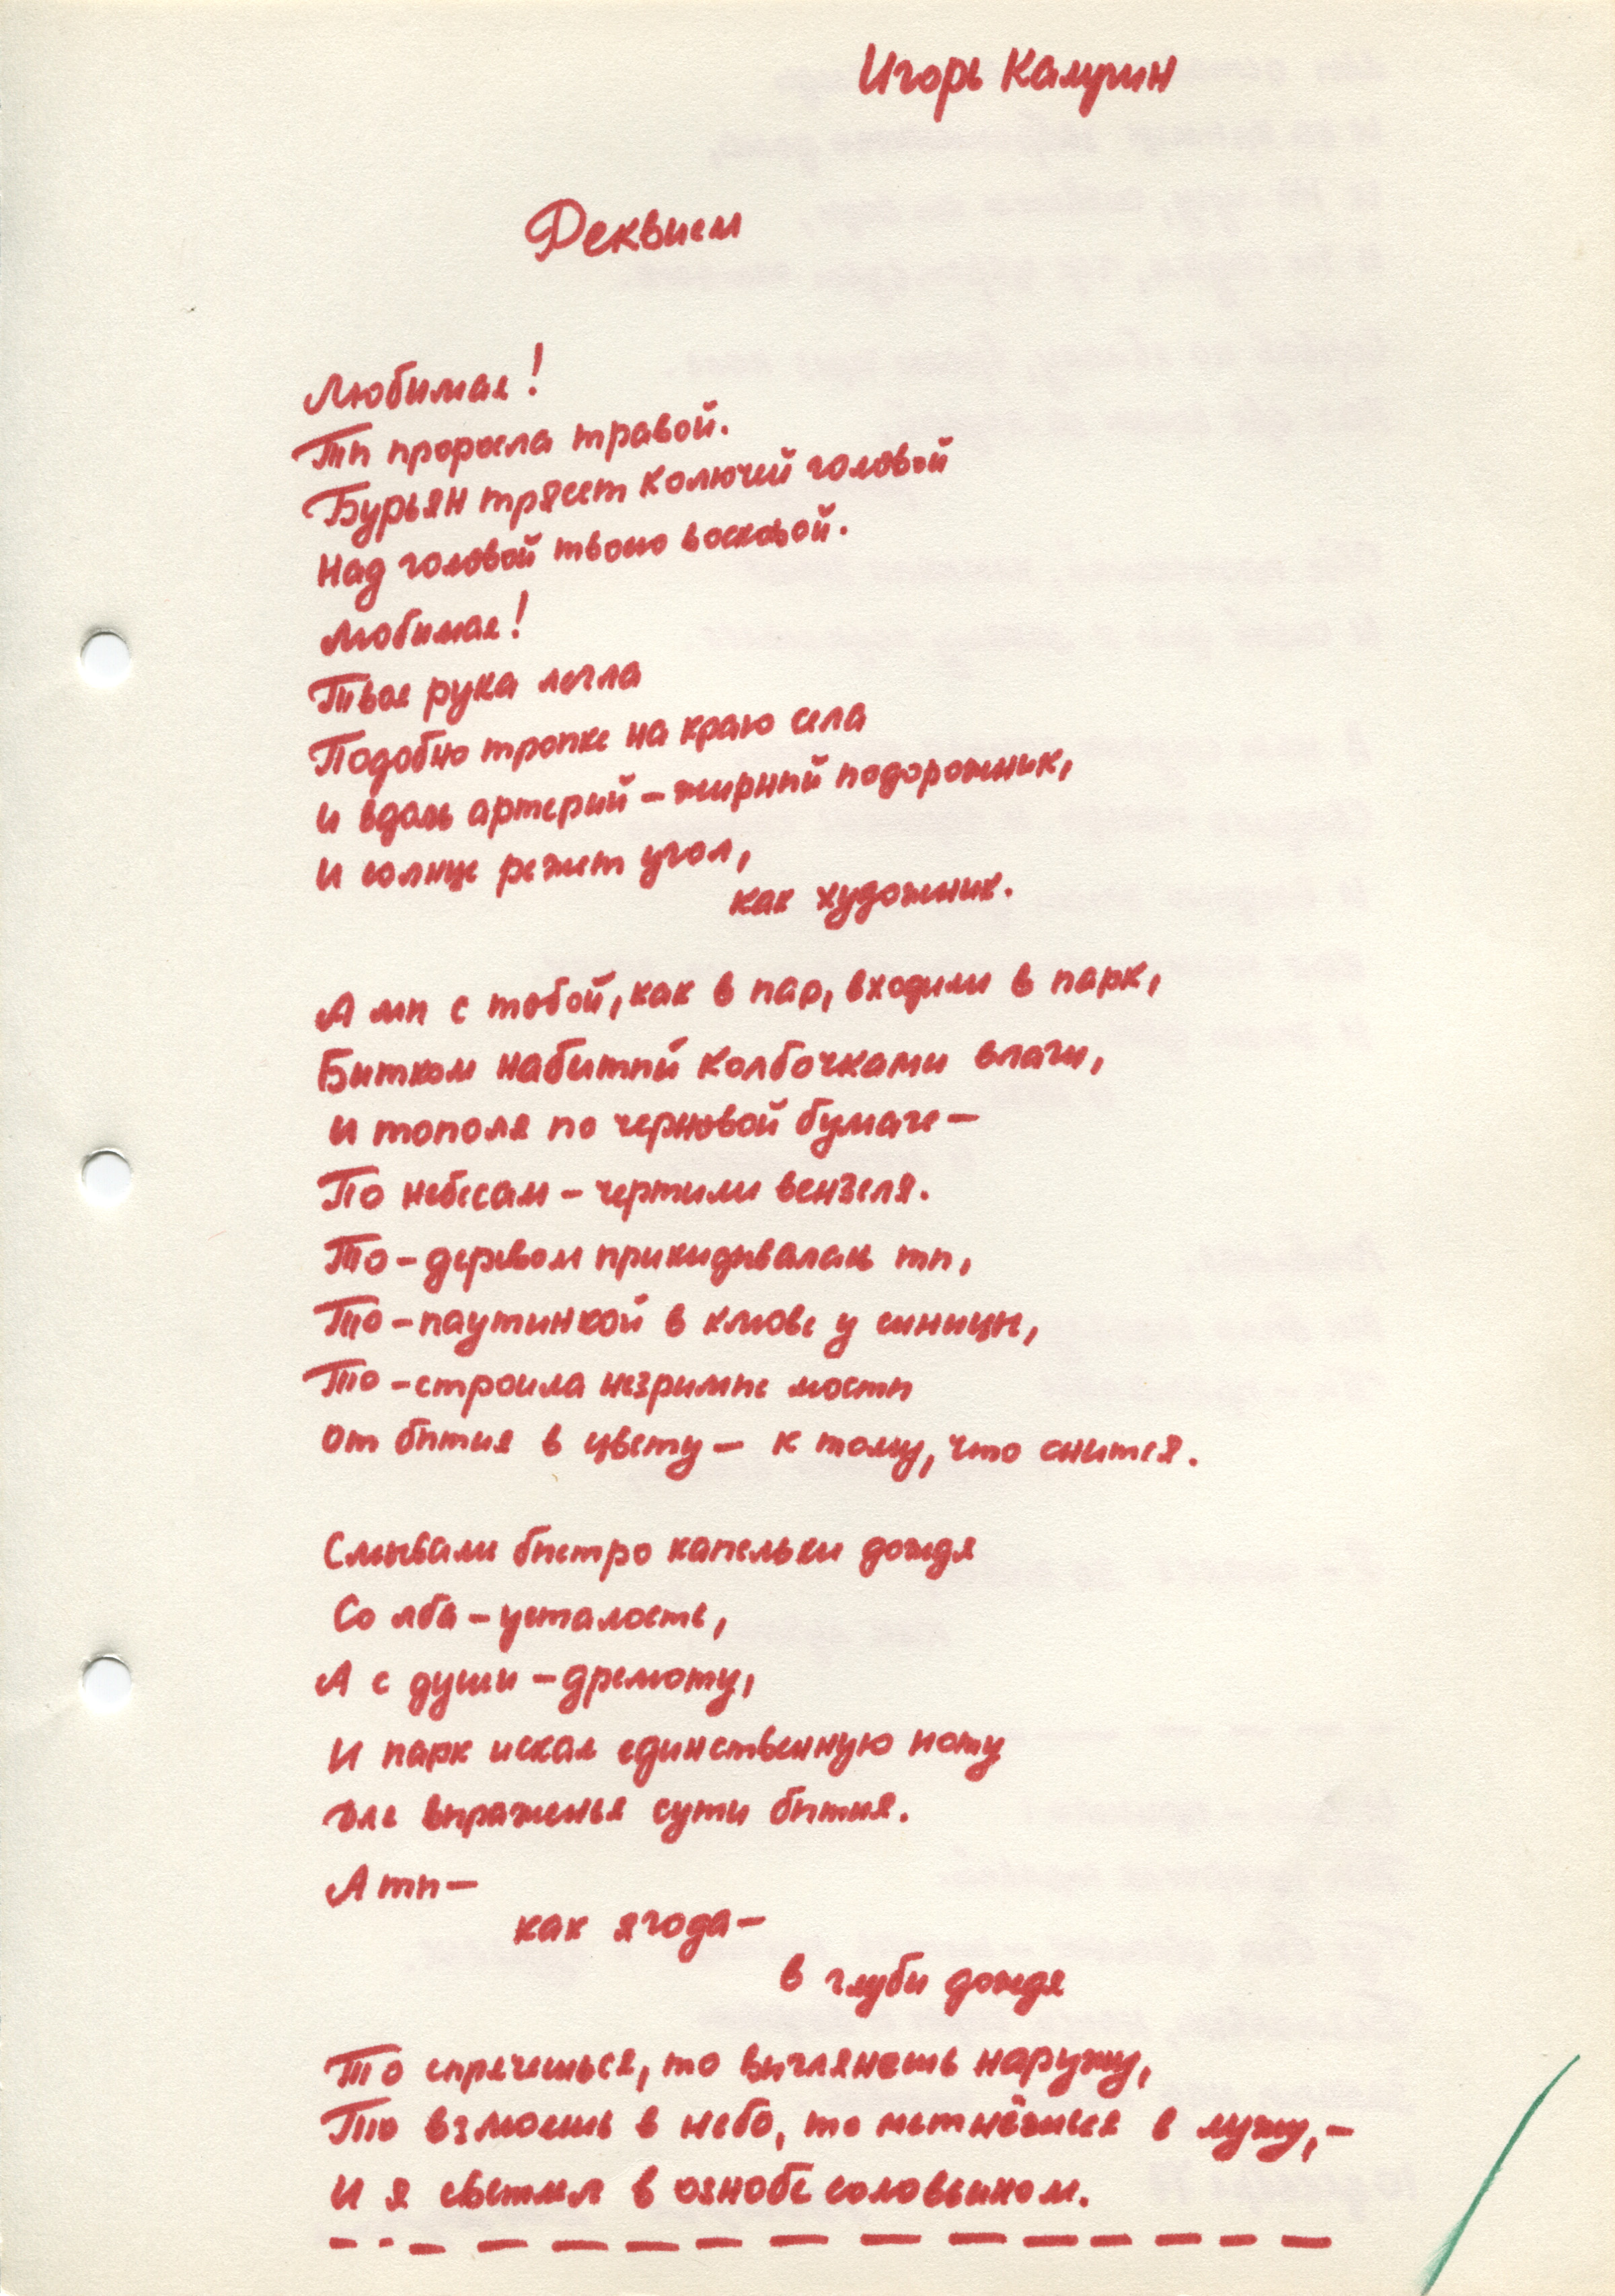 Игорь Калугин
Реквием
Любимая!
Ты проросла травой.
Бурьян трясет колючей головой
Над головой твоею восковой.
Любимая!
Твоя рука легла
Подобно тропке на краю села
И вдоль артерий – жирный подорожник,
И солнце режет угол,
как художник.
А мы с тобой, как в пар, входили в парк,
Битком набитый колбочками влаги,
И тополя по черновой бумаге –
По небесам – чертили вензеля.
То – деревом прикидывалась ты,
То – паутинкой в клюве у синицы,
То – строила незримые мосты
От бытия в цвету – к тому, что снится.
Смывали быстро капельки дождя
Со лба – усталость,
А с души – дремоту,
И парк искал единственную ноту
Для выраженья сути бытия.
А ты –
как ягода –
в глуби дождя
То спрячешься, то выглянешь наружу,
То взмоешь в небо, то метнёшься в лужу, –
И я светил в ознобе соловьином.